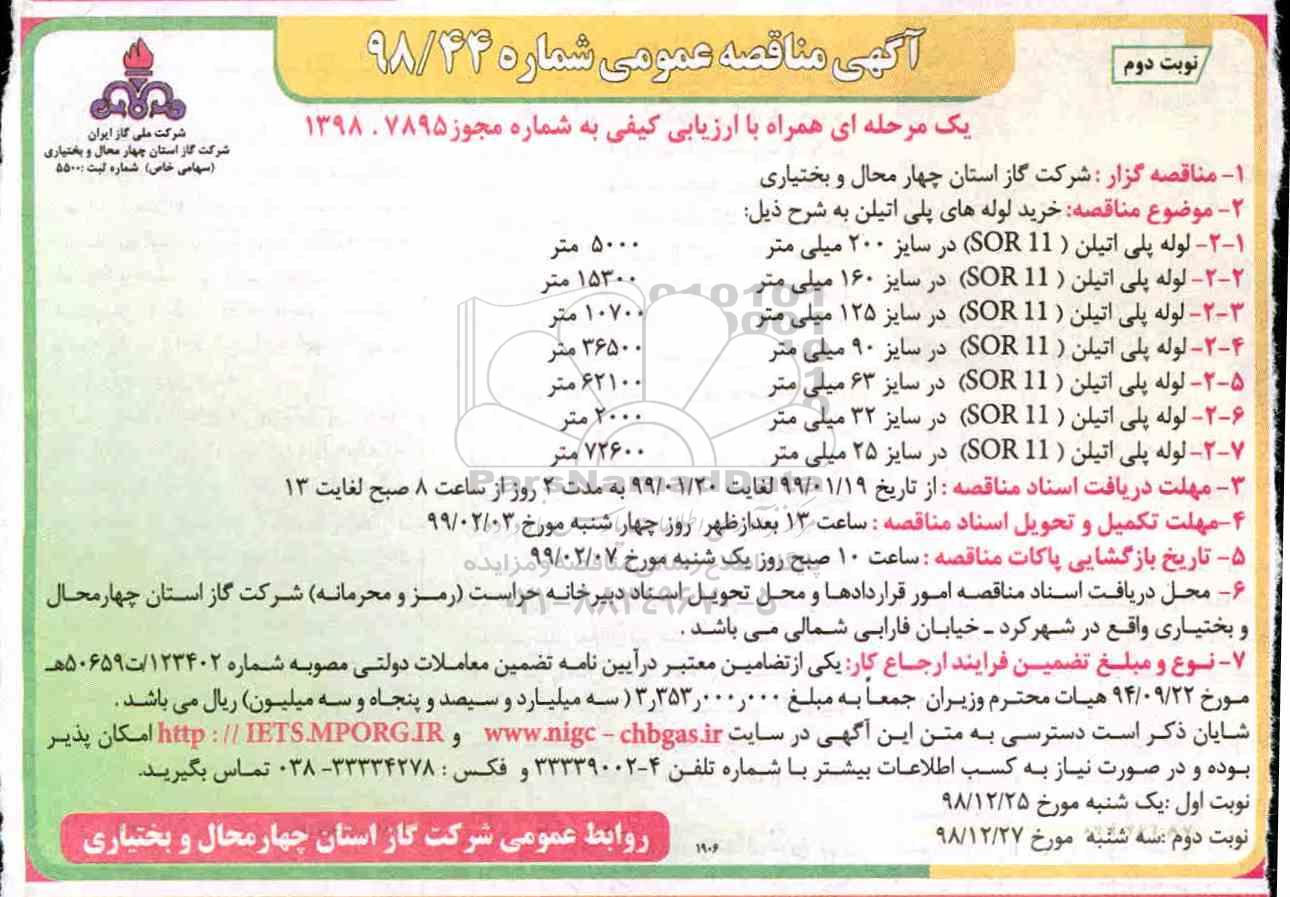 آگهی مناقصه عمومی شماره ۹۸/۴۴
نوبت دوم
شرکت ملی گاز ایران
شرکت گاز استان چهار محال و بختیاری
(سهامی خاص) شماره ثبت :۵۵۰۰
یک مرحله ای همراه با ارزیابی کیفی به شماره مجوز۷۸۹۵ . ۱۳۹۸
۱- مناقصه گزار : شرکت گاز استان چهار محال و بختیاری
۲- موضوع مناقصه: خرید لوله های پلی اتیلن به شرح ذیل:
۲-۱- لوله پلی اتیلن ( SOR 11) در سایز ۲۰۰ میلی متر ۵۰۰۰ متر
۲-۲- لوله پلی اتیلن ( SOR 11) در سایز ۱۶۰ میلی متر ۱۵۳۰۰ متر
۲-۳- لوله پلی اتیلن ( SOR 11) در سایز ۱۲۵ میلی متر ۱۰۷۰۰ متر
۲-۴- لوله پلی اتیلن ( SOR 11) در سایز ۹۰ میلی متر ۳۶۵۰۰ متر
۲-۵- لوله پلی اتیلن ( SOR 11) در سایز ۶۳ میلی متر ۶۲۱۰۰ متر
۲-۶- لوله پلی اتیلن ( SOR 11) در سایز ۳۲ میلی متر ۲۰۰۰ متر
۲-۷- لوله پلی اتیلن ( SOR 11) در سایز ۲۵ میلی متر ۷۲۶۰۰ متر
۳- مهلت دریافت اسناد مناقصه : از تاریخ ۹۹/۰۱/۱۹ لغایت ۹۹/۰۱/۲۰ به مدت ۲ روز از ساعت ۸ صبح لغایت ۱۳
۴-مهلت تکمیل و تحویل اسناد مناقصه : ساعت ۱۳ بعدازظهر روز چهار شنبه مورخ ۹۹/۰۲/۰۳
۵- تاریخ بازگشایی پاکات مناقصه : ساعت ۱۰ صبح روز یک شنبه مورخ ۹۹/۰۲/۰۷
۶- محل دریافت اسناد مناقصه امور قراردادها و محل تحویل اسناد دبیرخانه حراست (رمز و محرمانه) شرکت گاز استان چهارمحال
و بختیاری واقع در شهرکرد ـ خیابان فارابی شمالی می باشد .
۷- نوع و مبلغ تضمین فرایند ارجاع کار: یکی ازتضامین معتبر درآیین نامه تضمین معاملات دولتی مصوبه شماره ۱۲۳۴۰۲/ت۵۰۶۵۹هـ
مورخ ۹۴/۰۹/۲۲ هیات محترم وزیران جمعاً به مبلغ ۳٫۳۵۳٫۰۰۰٫۰۰۰ ( سه میلیارد و سیصد و پنجاه و سه میلیون) ریال می باشد .
شایان ذکر است دسترسی به متن این آگهی در سایت www.nigc - chbgas.ir و http : // IETS.MPORG.IR امکان پذیر
بوده و در صورت نیاز به کسب اطلاعات بیشتر با شماره تلفن ۴-۳۳۳۳۹۰۰۲ و فکس : ۳۳۳۳۴۲۷۸- ۰۳۸ تماس بگیرید.
نوبت اول :یک شنبه مورخ ۹۸/۱۲/۲۵
نوبت دوم :سه شنبه مورخ ۹۸/۱۲/۲۷
۱۹۰۶
روابط عمومی شرکت گاز استان چهارمحال و بختیاری